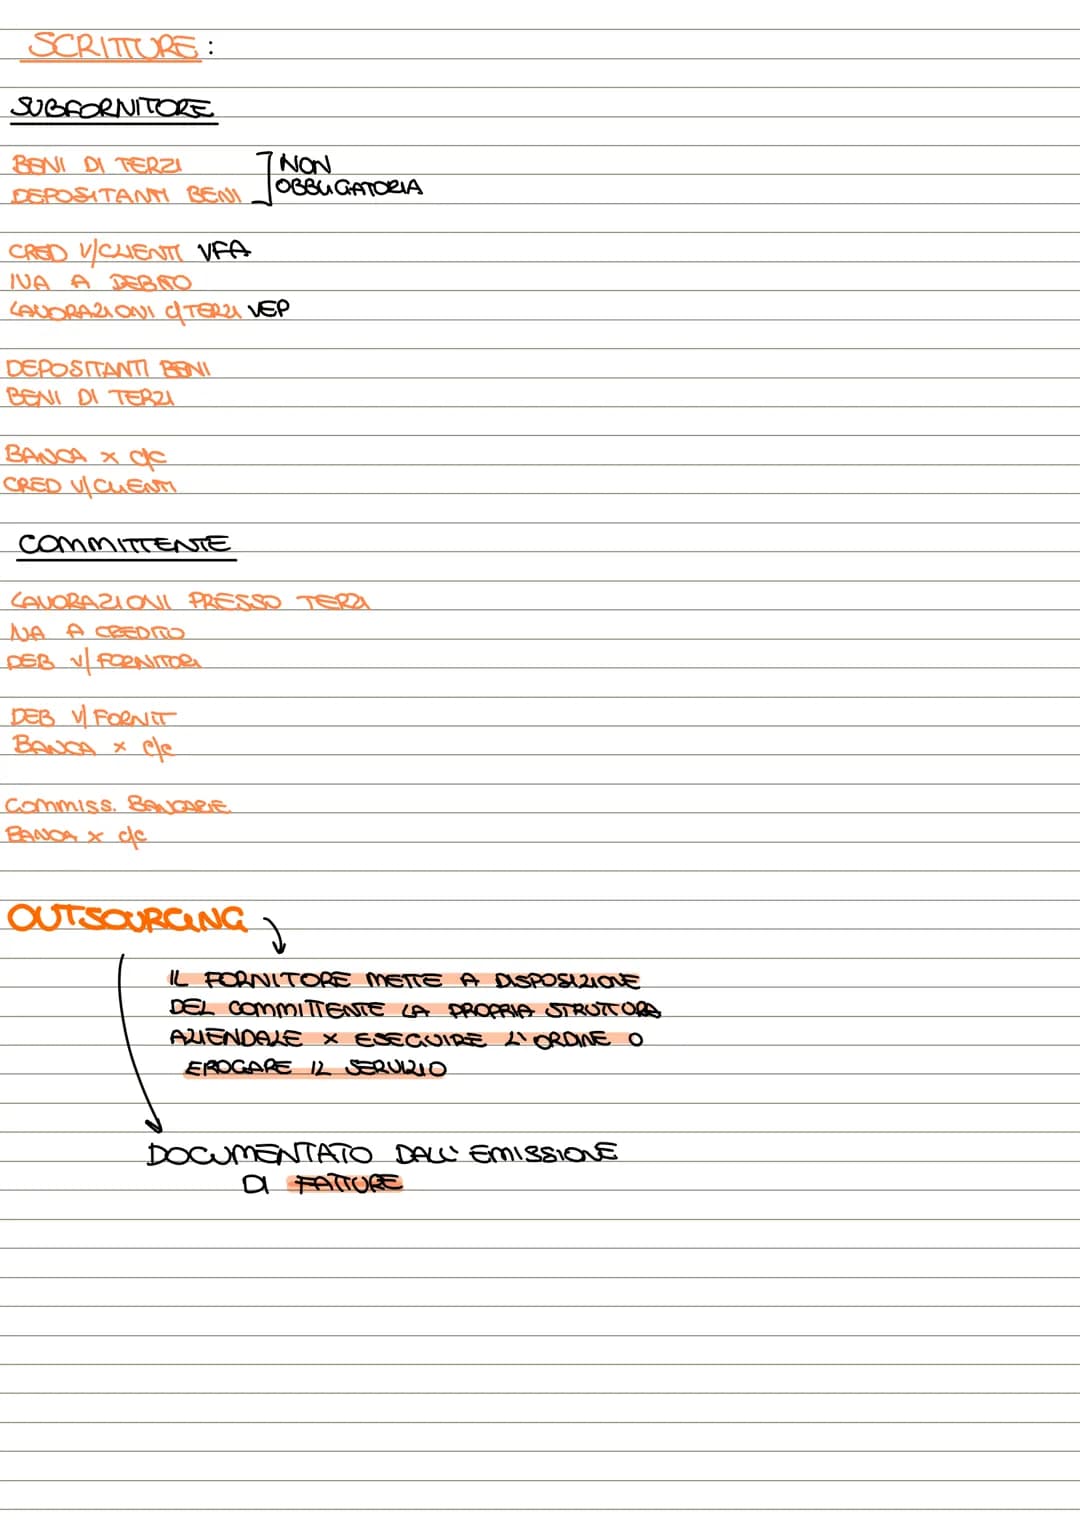 SCRITTURE:
SUBFORNITORE
BENI DI TERZI
DEPOSITANTI BENI
NON
OBBLIGATORIA
CRED V/CLIENTI VFA
IVA A DEBITO
LAVORAZIONI C/TERZI VEP
DEPOSITANTI BENI
BENI DI TERZI
BANCA x c/c
CRED V/CLIENTI
COMMITTENTE
LAVORAZIONI PRESSO TERZI
IVA A CREDITO
DEB V/FORNITORI
DEB V/FORNIT
BANCA x c/c
COMMISS. BANCARIE
BANCA x c/c
OUTSOURCING
IL FORNITORE METTE A DISPOSIZIONE
DEL COMMITTENTE LA PROPRIA STRUTTURA
AZIENDALE x ESEGUIRE L'ORDINE O
EROGARE IL SERVIZIO
DOCUMENTATO DALL'EMISSIONE
DI FATTURE